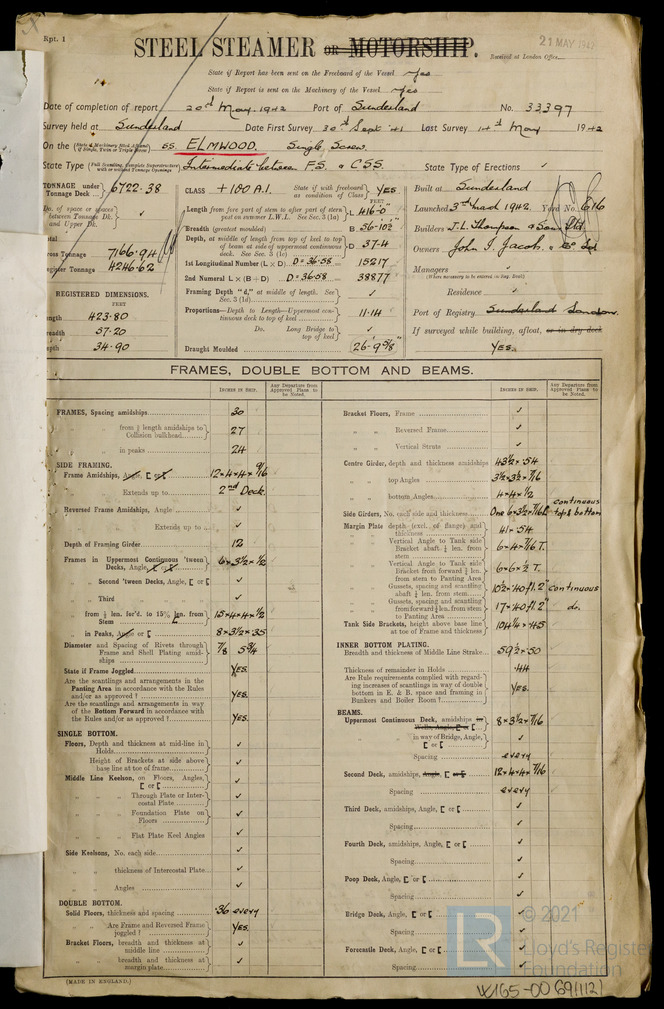 Rpt. 1
STEEL STEAMER OR MOTORSHIP.
21 MAY 1942
Received at London Office
State if Report has been sent on the Freeboard of the Vessel Yes
State if Report is sent on the Machinery of the Vessel Yes
Date of completion of report 20th May 1942 Port of Sunderland No. 33397
Survey held at Sunderland Date First Survey 30th Sept '41 Last Survey 14th May 1942
On the SS. ELMWOOD. Single Screw.
State Type Intermediate between F.S. & C.S.S. State Type of Erections ✓
TONNAGE under Tonnage Deck 6722.38
Do. of space or spaces between Tonnage Dk. and Upper Dk. ✓
Total
Gross Tonnage 7166.94
Register Tonnage 4246.62
REGISTERED DIMENSIONS.
FEET
Length 423.80
Breadth 57.20
Depth 34.90
CLASS +100 A.I. State if with freeboard as condition of Class YES
Length from fore part of stem to after part of stern post on summer L.W.L. See Sec. 3 (1a) L 416'-0"
Breadth (greatest moulded) B 56'-10½"
Depth, at middle of length from top of keel to top of beam at side of uppermost continuous deck. See Sec. 3 (1c) D 37.4
1st Longitudinal Number (L × D) D=36.58 15217
2nd Numeral L × (B + D) D=36.58 38877
Framing Depth "d," at middle of length. See Sec. 3 (1d) ✓
Proportions—Depth to Length—Uppermost continuous deck to top of keel 11.14
Do. Long Bridge to top of keel ✓
Draught Moulded 26'-9⅝"
Built at Sunderland
Launched 3rd March 1942. Yard No. 616
Builders J.L. Thompson & Sons Ltd
Owners John I. Jacobs & Co Ltd
Managers
(Where necessary to be entered in Reg. Book)
Residence ✓
Port of Registry Sunderland London.
If surveyed while building, afloat, or in dry dock
YES.
FRAMES, DOUBLE BOTTOM AND BEAMS.
INCHES IN SHIP.
Any Departure from Approved Plans to be Noted.
FRAMES, Spacing amidships 30
" " from ⅕ length amidships to Collision bulkhead 27
" " in peaks 24
SIDE FRAMING.
Frame Amidships, Angle, [ or [ 12×4×4×9/16
" " Extends up to 2nd Deck.
Reversed Frame Amidships, Angle ✓
" " " Extends up to ✓
Depth of Framing Girder 12
Frames in Uppermost Continuous 'tween Decks, Angle, [ or [ 6×3½×½
" Second 'tween Decks, Angle, [ or [ ✓
" Third " " " ✓
" from ⅕ len. for'd. to 15% len. from Stem 15×4×4×½
" in Peaks, Angle or [ 8×3½×.35
Diameter and Spacing of Rivets through Frame and Shell Plating amidships ⅞ 5¼
State if Frame Joggled YES.
Are the scantlings and arrangements in the Panting Area in accordance with the Rules and/or as approved? YES.
Are the scantlings and arrangements in way of the Bottom Forward in accordance with the Rules and/or as approved? YES.
SINGLE BOTTOM.
Floors, Depth and thickness at mid-line in Holds ✓
" Height of Brackets at side above base line at toe of frame ✓
Middle Line Keelson, on Floors, Angles, [ or [ ✓
" " " Through Plate or Intercostal Plate ✓
" " " Foundation Plate on Floors ✓
" " " Flat Plate Keel Angles ✓
Side Keelsons, No. each side ✓
" " thickness of Intercostal Plate ✓
" " Angles ✓
DOUBLE BOTTOM.
Solid Floors, thickness and spacing .36 every
" " Are Frame and Reversed Frame joggled? YES.
Bracket Floors, breadth and thickness at middle line ✓
" " breadth and thickness at margin plate ✓
Bracket Floors, Frame ✓
" " Reversed Frame ✓
" " Vertical Struts ✓
Centre Girder, depth and thickness amidships 43½×.54
" " top Angles 3½×3½×7/16
" " bottom Angles 4×4×½
Side Girders, No. each side and thickness One 6×3½×7/16 continuous top & bottom
Margin Plate depth (excl. of flange) and thickness 41×.54
" " Vertical Angle to Tank side Bracket abaft ⅕ len. from stem 6×4×7/16 T.
" " Vertical Angle to Tank side Bracket from forward ⅕ len. from stem to Panting Area 6×6×½ T.
" " Gussets, spacing and scantling abaft ⅕ len. from stem 10½×.40 fl. 2" continuous
" " Gussets, spacing and scantling from forward ⅕ len. from stem to Panting Area 17×.40 fl. 2" do.
Tank Side Brackets, height above base line at toe of Frame and thickness 104¼×.45
INNER BOTTOM PLATING.
Breadth and thickness of Middle Line Strake 59½×.50
Thickness of remainder in Holds .44
Are Rule requirements complied with regarding increases of scantlings in way of double bottom in E. & B. space and framing in Bunkers and Boiler Room? YES.
BEAMS.
Uppermost Continuous Deck, amidships in Wells, Angle, [ or [ 8×3½×7/16
" " in way of Bridge, Angle, [ or [ ✓
Spacing every
Second Deck, amidships, Angle, [ or [ 12×4×4×7/16
Spacing every
Third Deck, amidships, Angle, [ or [ ✓
Spacing ✓
Fourth Deck, amidships, Angle, [ or [ ✓
Spacing ✓
Poop Deck, Angle, [ or [ ✓
Spacing ✓
Bridge Deck, Angle, [ or [ ✓
Spacing ✓
Forecastle Deck, Angle, [ or [ ✓
Spacing ✓
LR © 2021
Lloyd's Register
Foundation
(MADE IN ENGLAND.)
W165-0069(1/2)